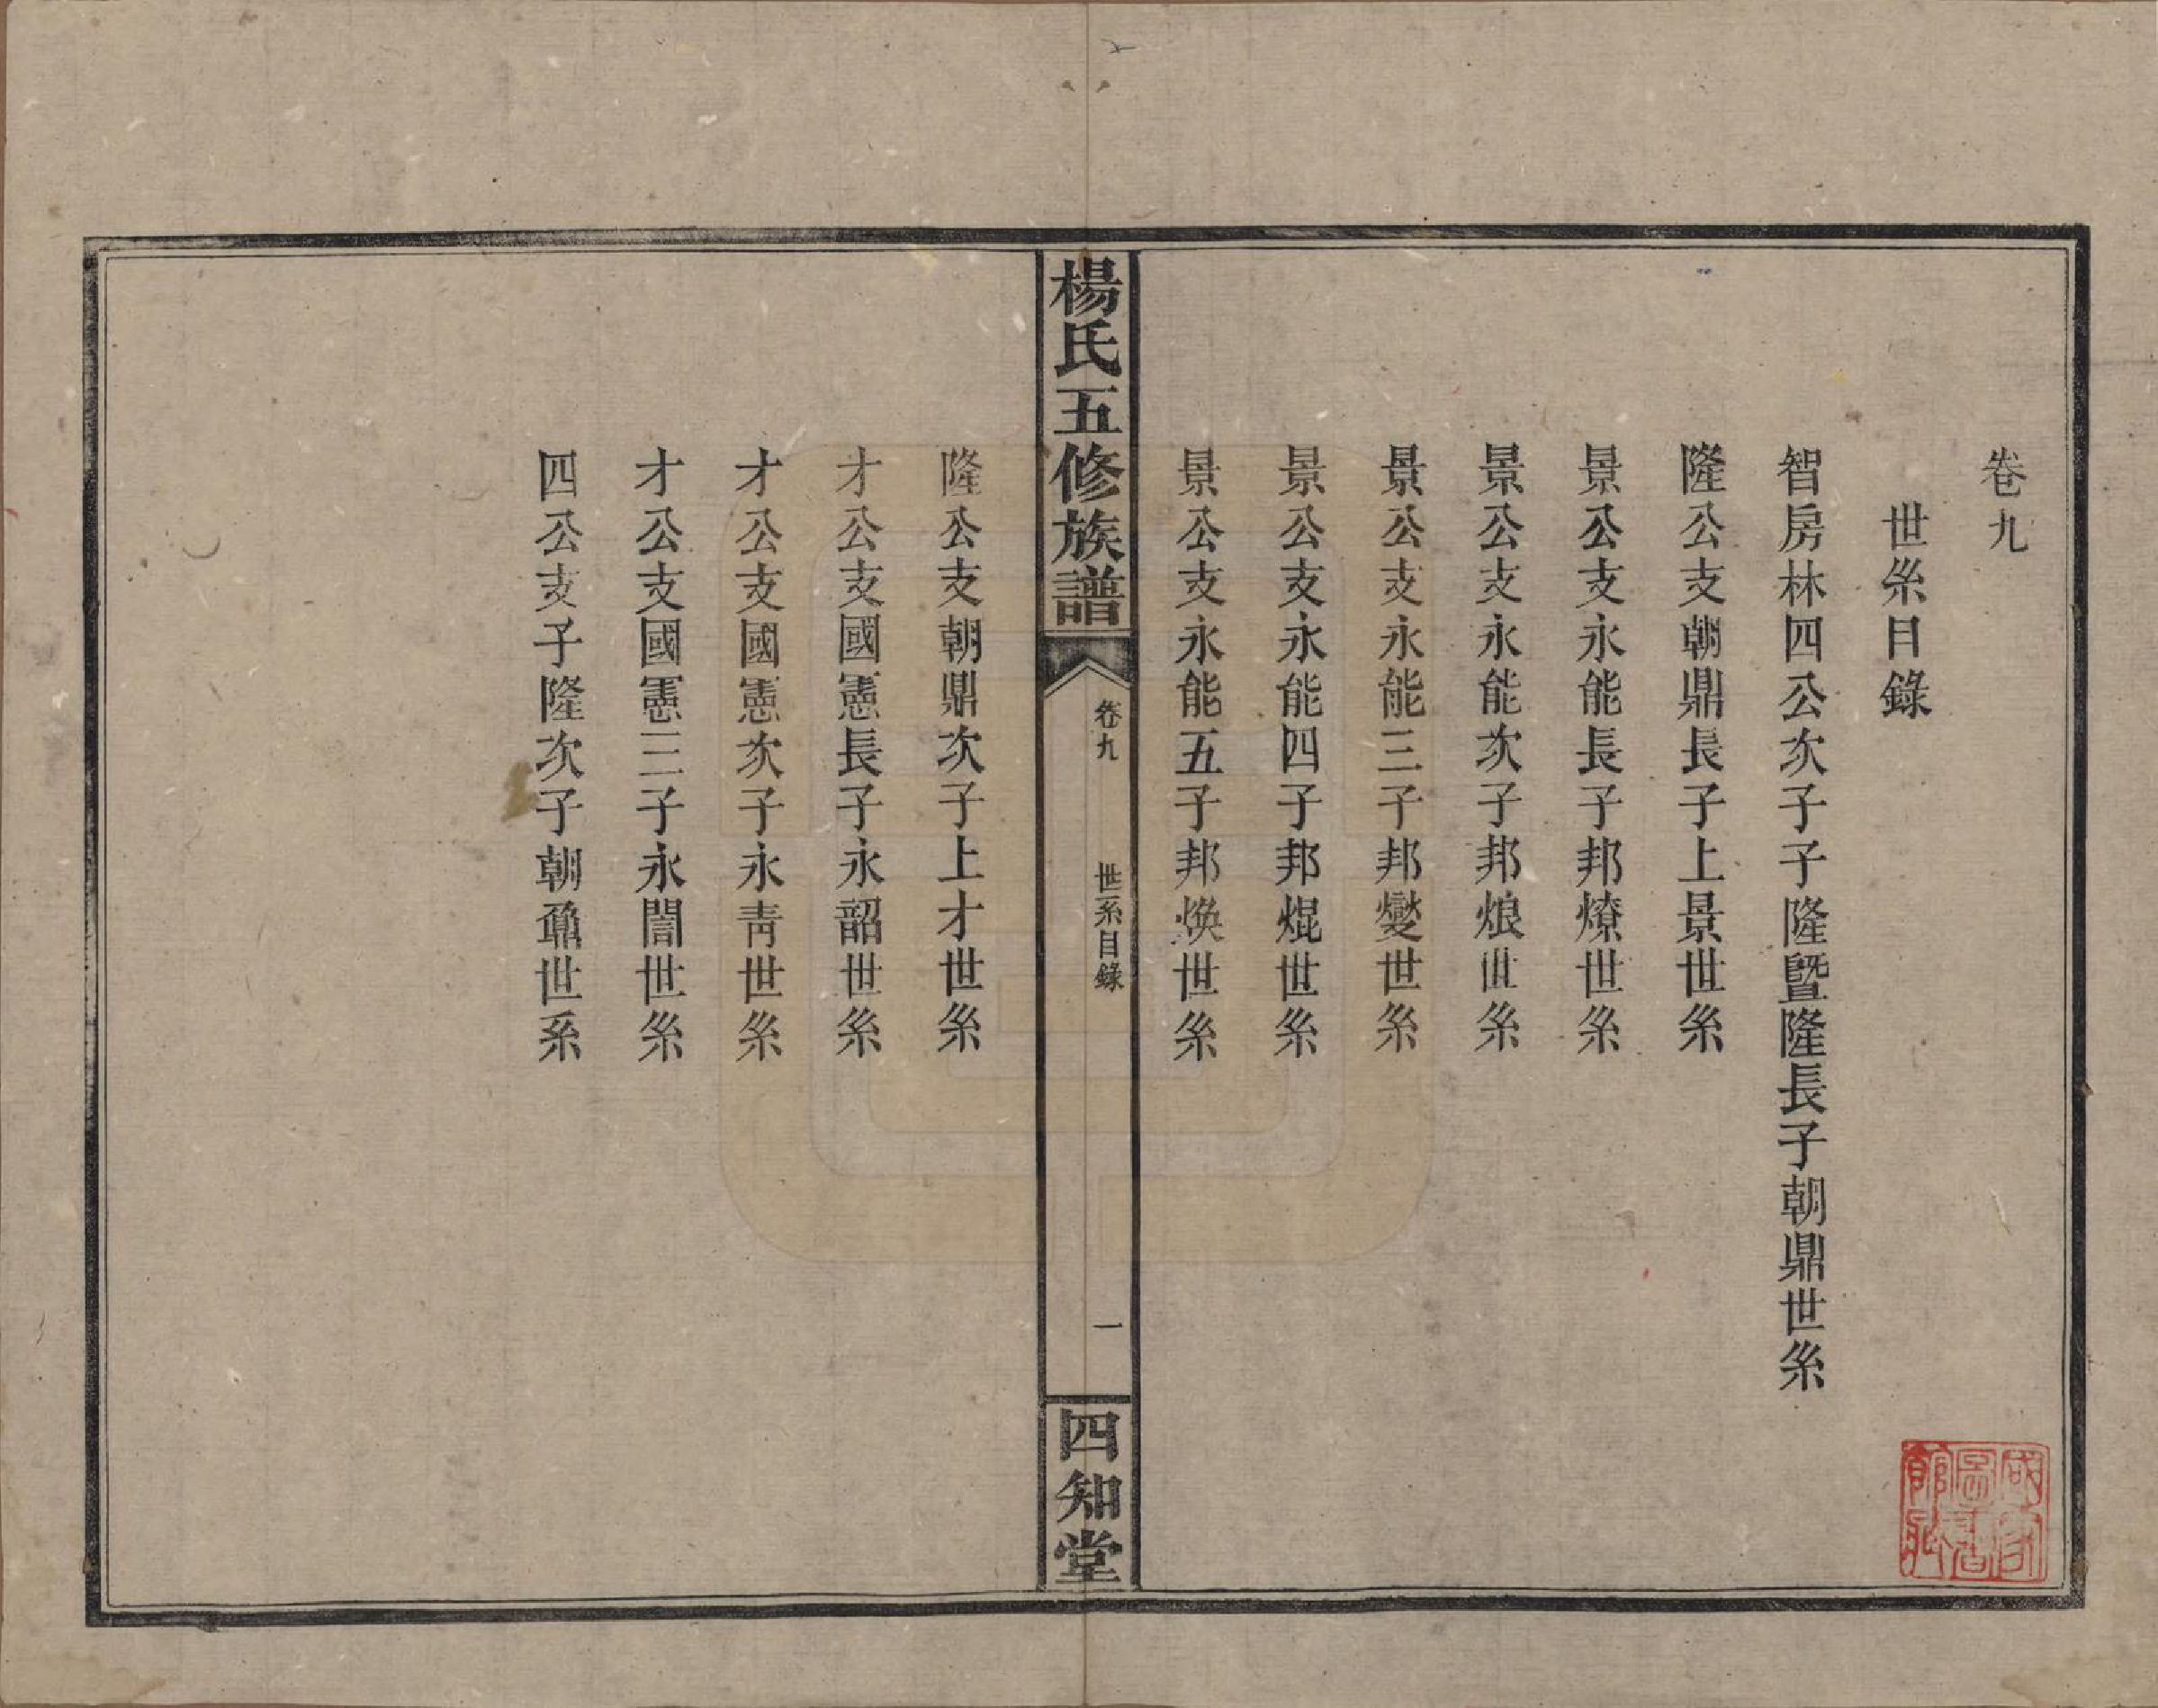 卷九
世系目錄
智房林四公次子子隆暨隆長子朝鼎世系
隆公支朝鼎長子上景世系
景公支永能長子邦燎世系
景公支永能次子邦烺世系
景公支永能三子邦燮世系
景公支永能四子邦焜世系
景公支永能五子邦煥世系
楊氏五修族譜
卷九
世系目錄
一
四知堂
隆公支朝鼎次子上才世系
才公支國憲長子永韶世系
才公支國憲次子永靑世系
才公支國憲三子永誾世系
四公支子隆次子朝鼐世系
國家圖書館藏